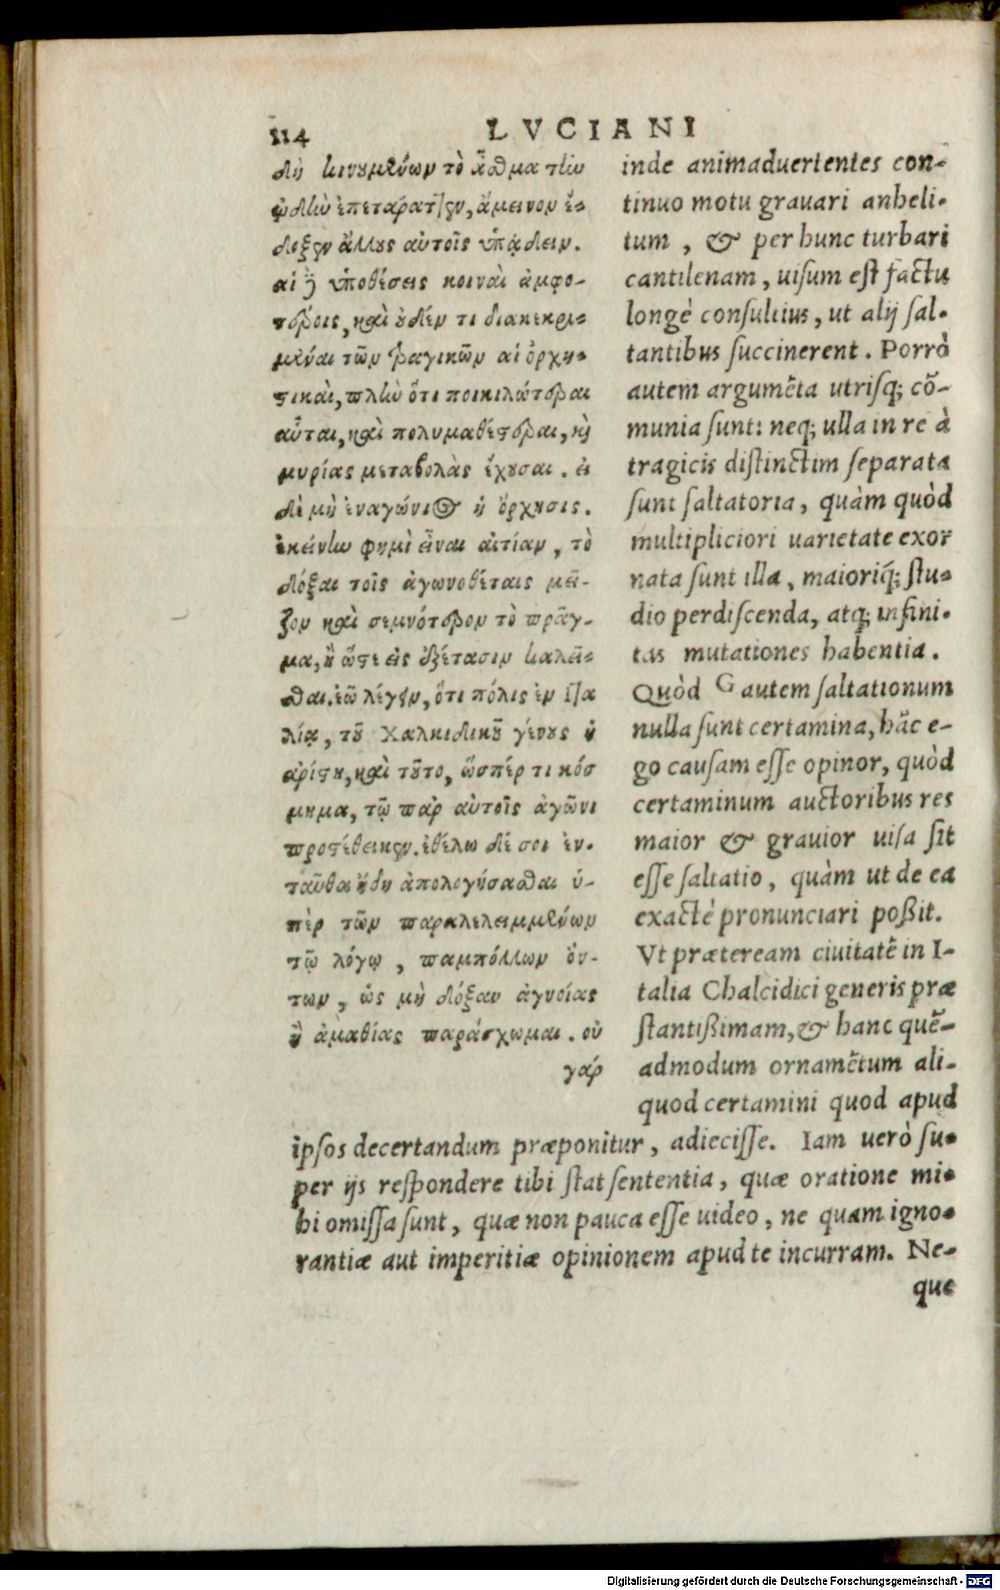 114 LVCIANI
δὴ κινουμένων τὸ ἆσθμα τὴν
ᾠδὴν ἐπεταράττεν, ἄμεινον ἔ-
δοξεν ἄλλους αὐτοῖς ὑπᾴδειν.
αἱ δὲ ὑποθέσεις κοιναὶ ἀμφο-
τέροις, καὶ οὐδέν τι διακεκρι-
μέναι τῶν τραγικῶν αἱ ὀρχη-
στικαὶ, πλὴν ὅτι ποικιλώτεραι
αὗται, καὶ πολυμαθέστεραι, καὶ
μυρίας μεταβολὰς ἔχουσαι. εἰ
δὲ μὴ ἐναγώνιος ἡ ὄρχησις.
ἐκείνην φημὶ εἶναι αἰτίαν, τὸ
δόξαι τοῖς ἀγωνοθέταις μεῖ-
ζον καὶ σεμνότερον τὸ πρᾶγ-
μα, ἢ ὥστε εἰς ἐξέτασιν καλεῖ-
σθαι. ἐῶ λέγειν, ὅτι πόλις ἐν Ιτα
λίᾳ, τοῦ Χαλκιδικοῦ γένους ἡ
αρίστη, καὶ τοῦτο, ὥσπέρ τι κόσ
μημα, τῷ παρ αὐτοῖς ἀγῶνι
προστέθεικεν. ἐθέλω δέ σοι ἐν-
ταῦθα ἤδη ἀπολογήσασθαι ὑ-
πὲρ τῶν παραλελειμμένων
τῷ λόγῳ, παμπόλλων ὄν-
των, ὡς μὴ δόξαν ἀγνοίας
ἢ ἀμαθίας παράσχωμαι. οὐ
γάρ
inde animaduertentes con-
tinuo motu grauari anheli-
tum, & per hunc turbari
cantilenam, uisum est factu
longè consultius, ut alij sal-
tantibus succinerent. Porrò
autem argumẽta utrisq; cõ-
munia sunt: neq; ulla in re à
tragicis distinctim separata
sunt saltatoria, quàm quòd
multipliciori uarietate exor
nata sunt illa, maioriq́; stu-
dio perdiscenda, atq; infini-
tas mutationes habentia.
Quòd G autem saltationum
nulla sunt certamina, hãc e-
go causam esse opinor, quòd
certaminum auctoribus res
maior & grauior uisa sit
esse saltatio, quàm ut de ea
exactè pronunciari poßit.
Vt præteream ciuitatẽ in I-
talia Chalcidici generis præ
stantißimam, & hanc quẽ-
admodum ornamẽtum ali-
quod certamini quod apud
ipsos decertandum præponitur, adiecisse. Iam uerò su-
per ijs respondere tibi stat sententia, quæ oratione mi-
hi omissa sunt, quæ non pauca esse uideo, ne quam igno-
rantiæ aut imperitiæ opinionem apud te incurram. Ne-
que
Digitalisierung gefördert durch die Deutsche Forschungsgemeinschaft - DFG